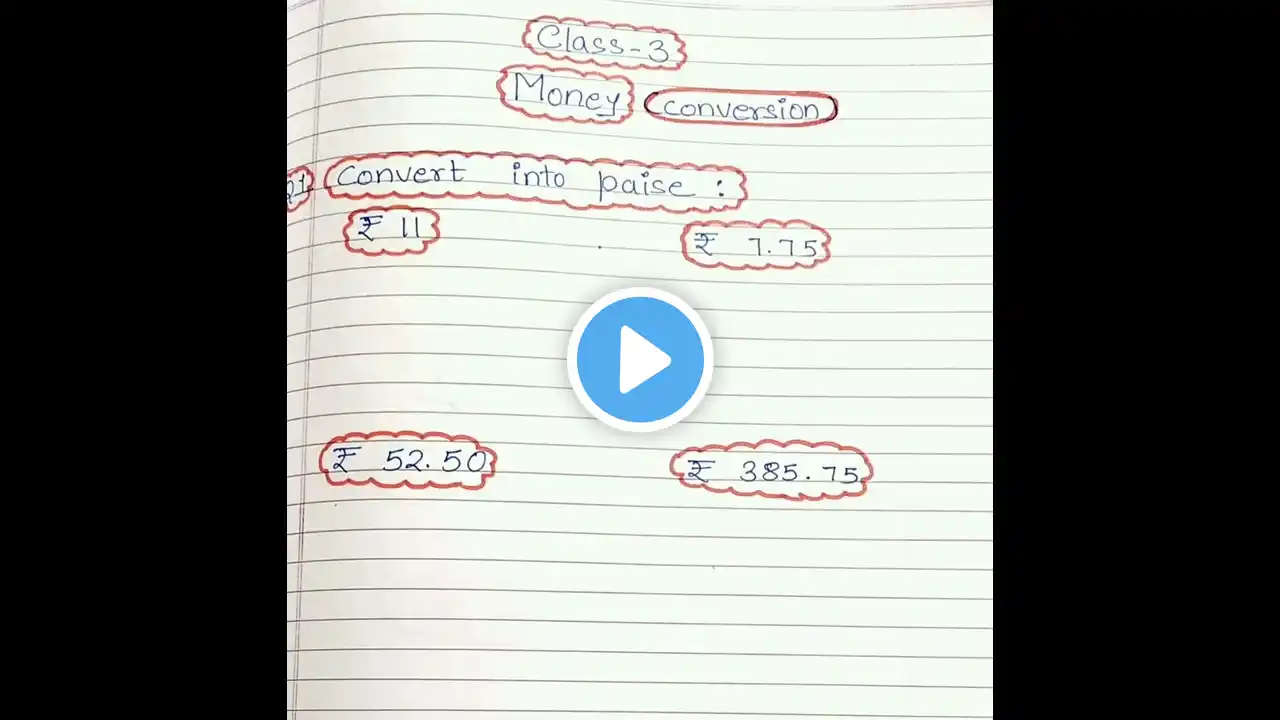 Class-3
Money conversion
Q1 Convert into paise :
₹ 11 ₹ 7.75
₹ 52.50 ₹ 385.75